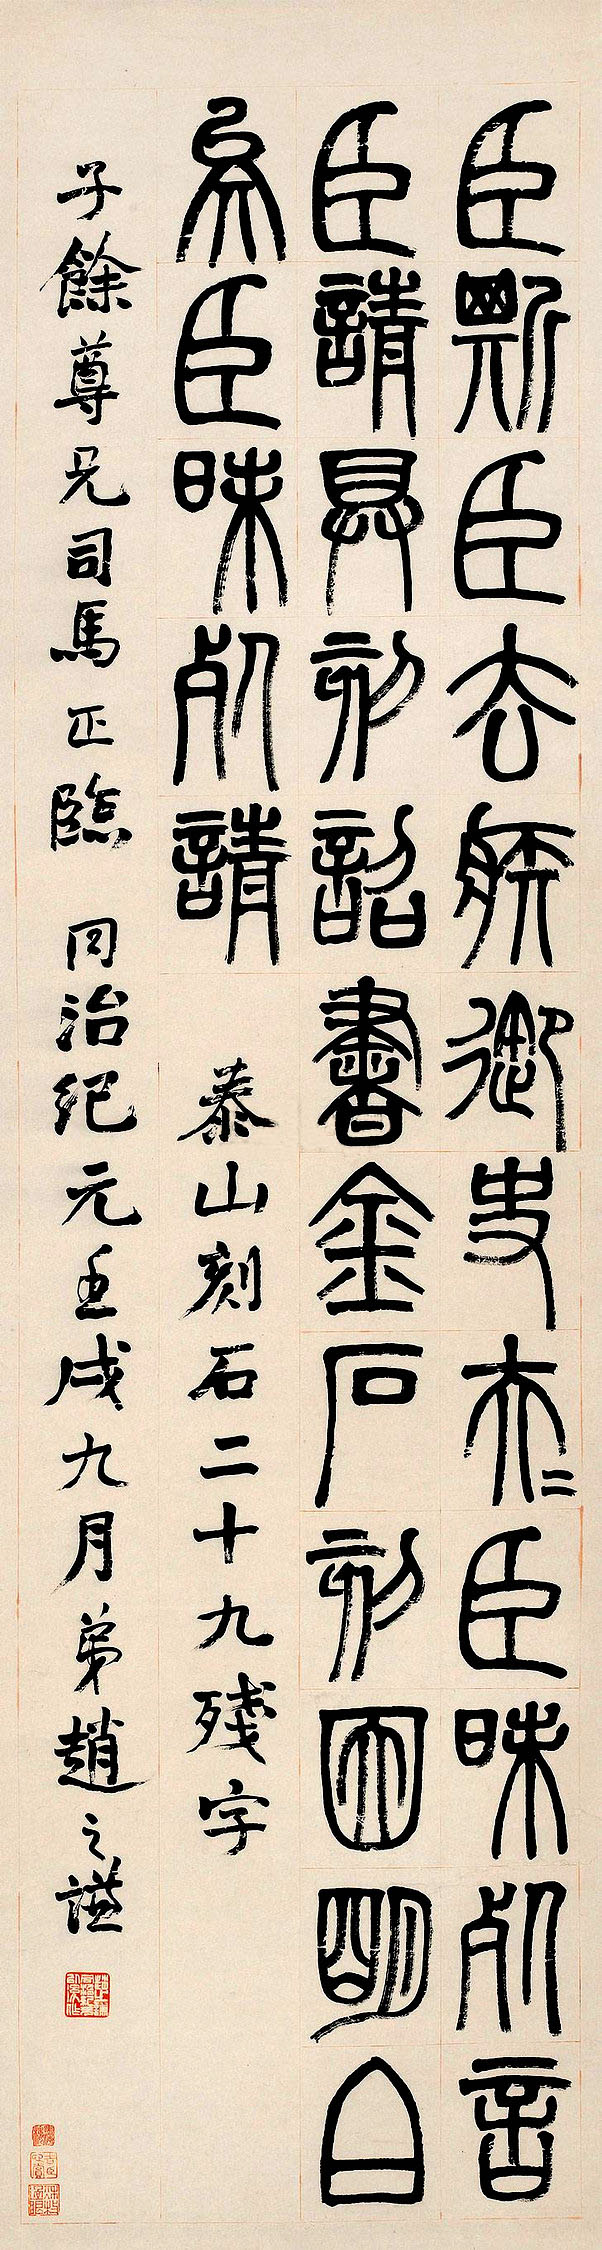 臣斯臣去疾御史夫二臣昧死言
臣請具刻詔書金石刻因明白
矣臣昧死請 泰山刻石二十九殘字
子餘尊兄司馬正臨 同治紀元壬戌九月弟趙之謙